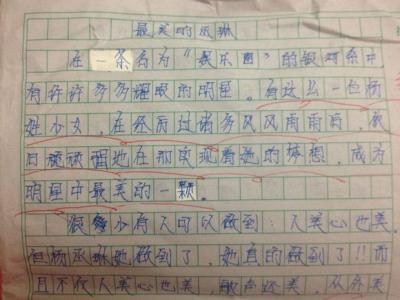 最美的丞琳
在一条名为“娱乐圈”的银河系中
有许许多多耀眼的明星。有这么一位杨
姓少女，在经历过诸多风风雨雨后，依
旧地在实现着她的梦想，成为
明星中最美的一颗。
很少有人可以做到：人美心也美。
但杨丞琳她做到了，她真的做到了!!而
且不仅人美心也美，歌声还美，从外美